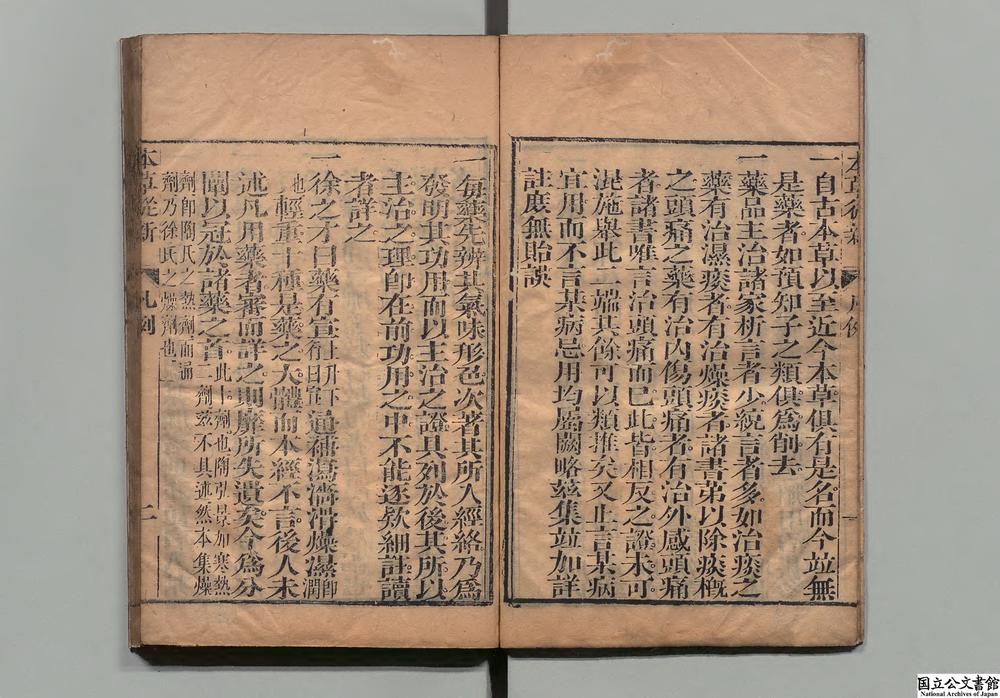 一自古本草以至近今本草俱有是名而今竝無
是藥者如預知子之類俱爲削去
一藥品主治諸家析言者少統言者多如治痰之
藥有治濕痰者有治燥痰者諸書第以除痰概
之頭痛之藥有治內傷頭痛者有治外感頭痛
者諸書唯言治頭痛而已此皆相反之證未可
混施舉此二端其餘可以類推矣又止言某病
宜用而不言某病忌用均屬闕略茲集竝加詳
註庶無貽誤
一每藥先辨其氣味形色次著其所入經絡乃爲
發明其功用而以主治之證具列於後其所以
主治之理即在前功用之中不能逐欵細註讀
者詳之
一徐之才曰藥有宣上升下行曰宣通補瀉濇滑燥濕即潤
也輕重十種是藥之大體而本經不言後人未
述凡用藥者審而詳之則靡所失遺矣今爲分
闡以冠於諸藥之首此十劑也陶弘景加寒熱二劑茲不具述然本集燥
劑即陶氏之熱劑而濕劑乃徐氏之燥劑也
本草從新
凡例
二
国立公文書館
National Archives of Japan